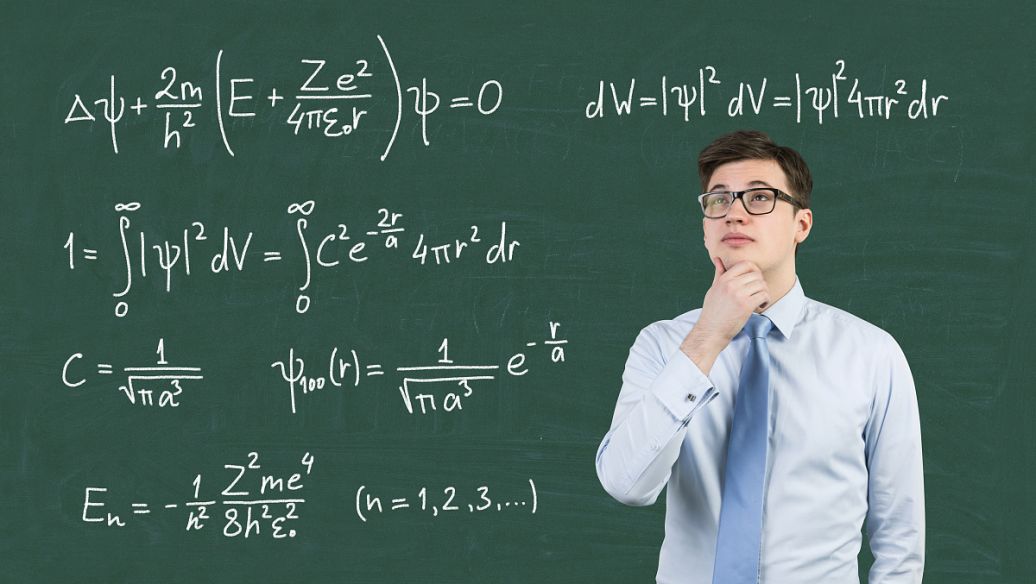 Δψ + 2m/h² (E + Ze²/4πε₀r) ψ = 0
dW = |ψ|² dV = |ψ|² 4πr² dr
1 = ∫₀^∞ |ψ|² dV = ∫₀^∞ C² e^(-2r/a) 4πr² dr
C = 1/√(πa³)  ψ₁₀₀(r) = 1/√(πa³) e^(-r/a)
Eₙ = -1/n² Z²me⁴/8h²ε₀² (n = 1, 2, 3, ...)